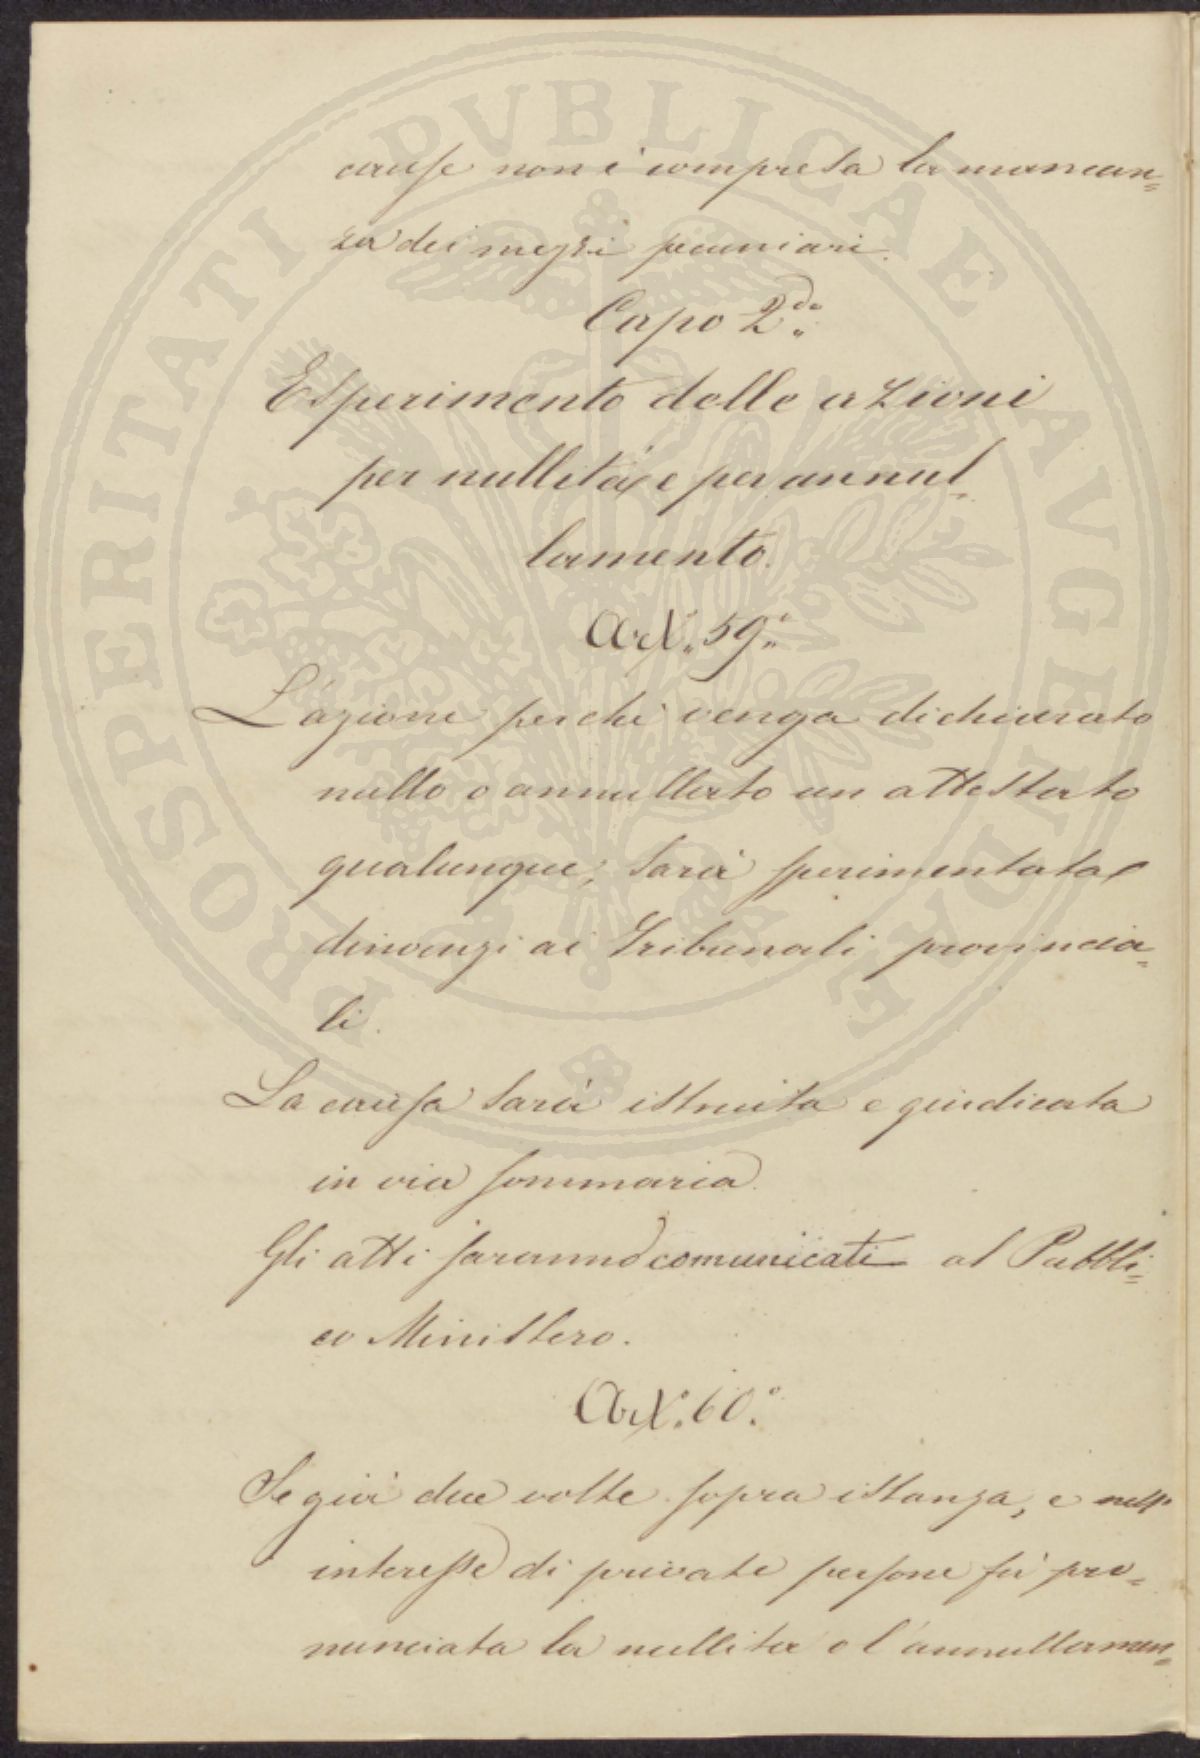 cause non è compresa la mancan=
za dei mezzi pecuniari.
Capo 2.do
Esperimento delle azioni
per nullità, e per annul
lamento.
Art. 59.°
L'azione perché venga dichiarato
nullo o annullato un attestato
qualunque, sarà sperimentata
dinanzi ai Tribunali provincia=
li.
La causa sarà istruita e giudicata
in via sommaria.
Gli atti saranno comunicati al Pubbli=
co Ministero.
Art. 60.°
Se già due volte sopra istanza, e nell'
interesse di private persone fù pro=
nunciata la nullità o l'annullamen=
PROSPERITATI PVBLICAE AVGENDAE